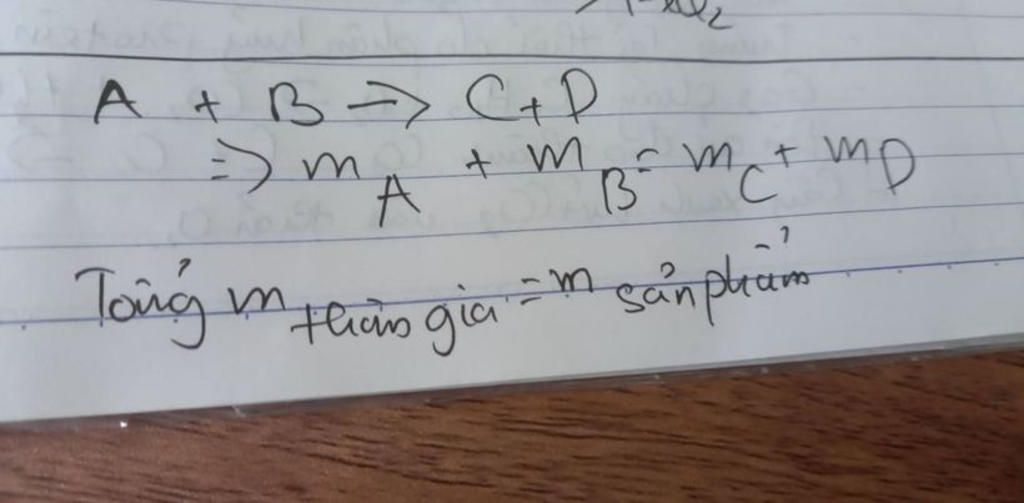 A + B → C + D
⇒ m_A + m_B = m_C + m_D
Tổng m tham gia = m sản phẩm